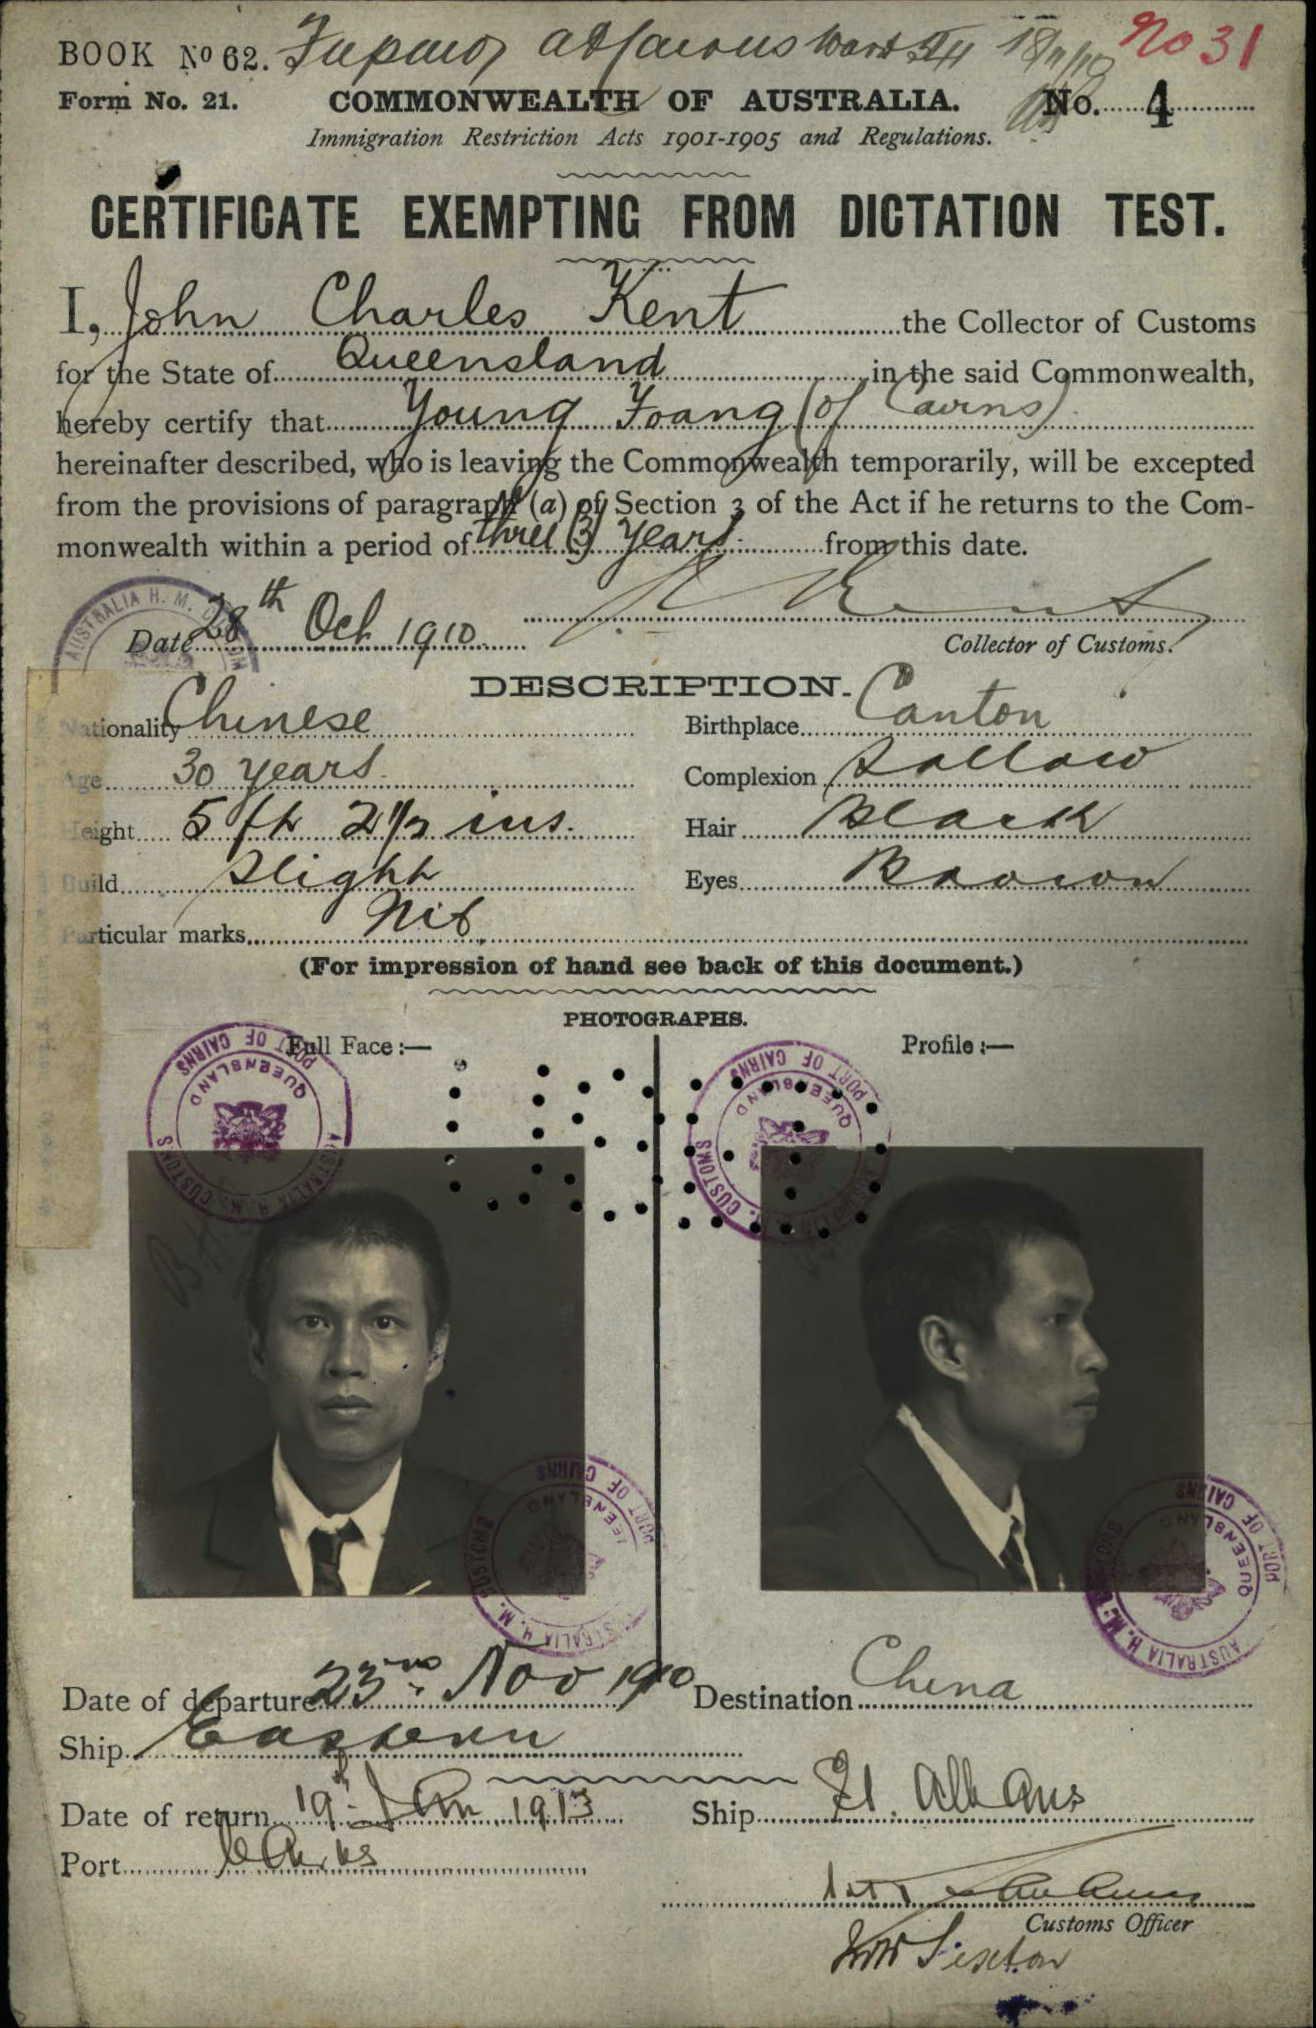 BOOK No 62.
No 31
Form No. 21. COMMONWEALTH OF AUSTRALIA. No. 4
Immigration Restriction Acts 1901-1905 and Regulations.
CERTIFICATE EXEMPTING FROM DICTATION TEST.
I, John Charles Kent the Collector of Customs
for the State of Queensland in the said Commonwealth,
hereby certify that Young Foang (of Cairns)
hereinafter described, who is leaving the Commonwealth temporarily, will be excepted
from the provisions of paragraph (a) of Section 3 of the Act if he returns to the Com-
monwealth within a period of three (3) years from this date.
AUSTRALIA H. M.
Date 28th Oct 1910
Collector of Customs.
DESCRIPTION.
Nationality Chinese Birthplace Canton
Age 30 years Complexion Sallow
Height 5 ft 2 1/2 ins. Hair Black
Build Slight Eyes Brown
Particular marks Nil
(For impression of hand see back of this document.)
PHOTOGRAPHS.
Full Face:— Profile:—
PORT OF CAIRNS QUEENSLAND AUSTRALIA H. M. CUSTOMS
PORT OF CAIRNS QUEENSLAND CUSTOMS
PORT OF CAIRNS QUEENSLAND AUSTRALIA H. M. CUSTOMS
PORT OF CAIRNS QUEENSLAND AUSTRALIA H. M.
Date of departure 23rd Nov 1910 Destination China
Ship Eastern
Date of return 19th Jan 1913 Ship St. Albans
Port Cairns
Customs Officer
Sexton